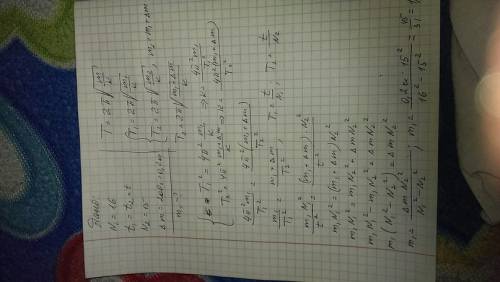 Дано:
N₁ = 16
t₁ = t₂ = t
N₂ = 15
m₁ - ?
T = 2π√(m/k)
{ T₁ = 2π√(m₁/k)
{ T₂ = 2π√(m₂/k), m₂ = m₁ + Δm
T₂ = 2π√((m₁ + Δm)/k)
{ T₁² = 4π² m₁/k ⇒ k = 4π² m₁/T₁²
{ T₂² = 4π² (m₁ + Δm)/k ⇒ k = 4π² (m₁ + Δm)/T₂²
4π² m₁/T₁² = 4π² (m₁ + Δm)/T₂²
m₁/T₁² = (m₁ + Δm)/T₂² ; T₁ = t/N₁ ; T₂ = t/N₂
m₁ N₁²/t² = (m₁ + Δm) N₂²/t²
m₁ N₁² = (m₁ + Δm) N₂²
m₁ N₁² = m₁ N₂² + Δm N₂²
m₁ N₁² - m₁ N₂² = Δm N₂²
m₁ (N₁² - N₂²) = Δm N₂²
m₁ = Δm N₂²/(N₁² - N₂²) ; m₁ = 0,2кг · 15²/(16² - 15²) = 45/31 =